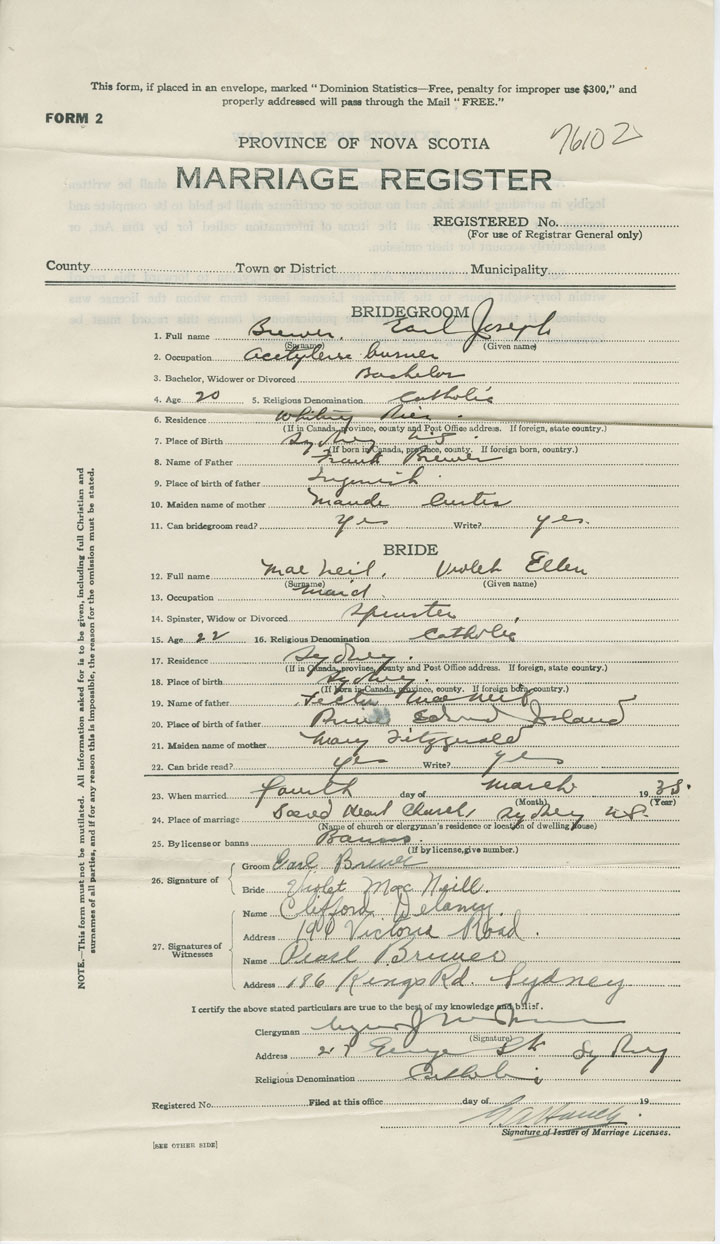 This form, if placed in an envelope, marked "Dominion Statistics—Free, penalty for improper use $300," and
properly addressed will pass through the Mail "FREE."
FORM 2
76102
PROVINCE OF NOVA SCOTIA
MARRIAGE REGISTER
REGISTERED No.
(For use of Registrar General only)
County Town or District Municipality
BRIDEGROOM
1. Full name Brewer, Earl Joseph
(Surname) (Given name)
2. Occupation Acetylene burner
3. Bachelor, Widower or Divorced Bachelor
4. Age 20 5. Religious Denomination Catholic
6. Residence Whitney Pier.
(If in Canada, province, county and Post Office address. If foreign, state country.)
7. Place of Birth Sydney N.S.
(If born in Canada, province, county. If foreign born, country.)
8. Name of Father Frank Brewer
9. Place of birth of father
10. Maiden name of mother Maude Curtis
11. Can bridegroom read? Yes Write? yes.
BRIDE
12. Full name MacNeil, Violet Ellen
(Surname) (Given name)
13. Occupation Maid.
14. Spinster, Widow or Divorced Spinster
15. Age 22 16. Religious Denomination Catholic
17. Residence Sydney.
(If in Canada, province, county and Post Office address. If foreign, state country.)
18. Place of birth Sydney.
(If born in Canada, province, county. If foreign born, country.)
19. Name of father MacNeil
20. Place of birth of father Prince Edward Island
21. Maiden name of mother Mary Fitzgerald
22. Can bride read? yes Write? yes
23. When married fourth day of March 1938.
(Month) (Year)
24. Place of marriage Sacred Heart Church, Sydney N.S.
(Name of church or clergyman's residence or location of dwelling house)
25. By license or banns Banns.
(If by license, give number.)
26. Signature of
Groom Earl Brewer
Bride Violet MacNeill.
27. Signatures of
Witnesses
Name Clifford Delaney.
Address Victoria Road.
Name Pearl Brewer
Address 186 Kings Rd. Sydney
I certify the above stated particulars are true to the best of my knowledge and belief.
Clergyman
(Signature)
Address George St. Sydney
Religious Denomination Catholic
Registered No. Filed at this office day of 19
Signature of Issuer of Marriage Licenses.
[SEE OTHER SIDE]
NOTE.—This form must not be mutilated. All information asked for is to be given, including full Christian and
surnames of all parties, and if for any reason this is impossible, the reason for the omission must be stated.